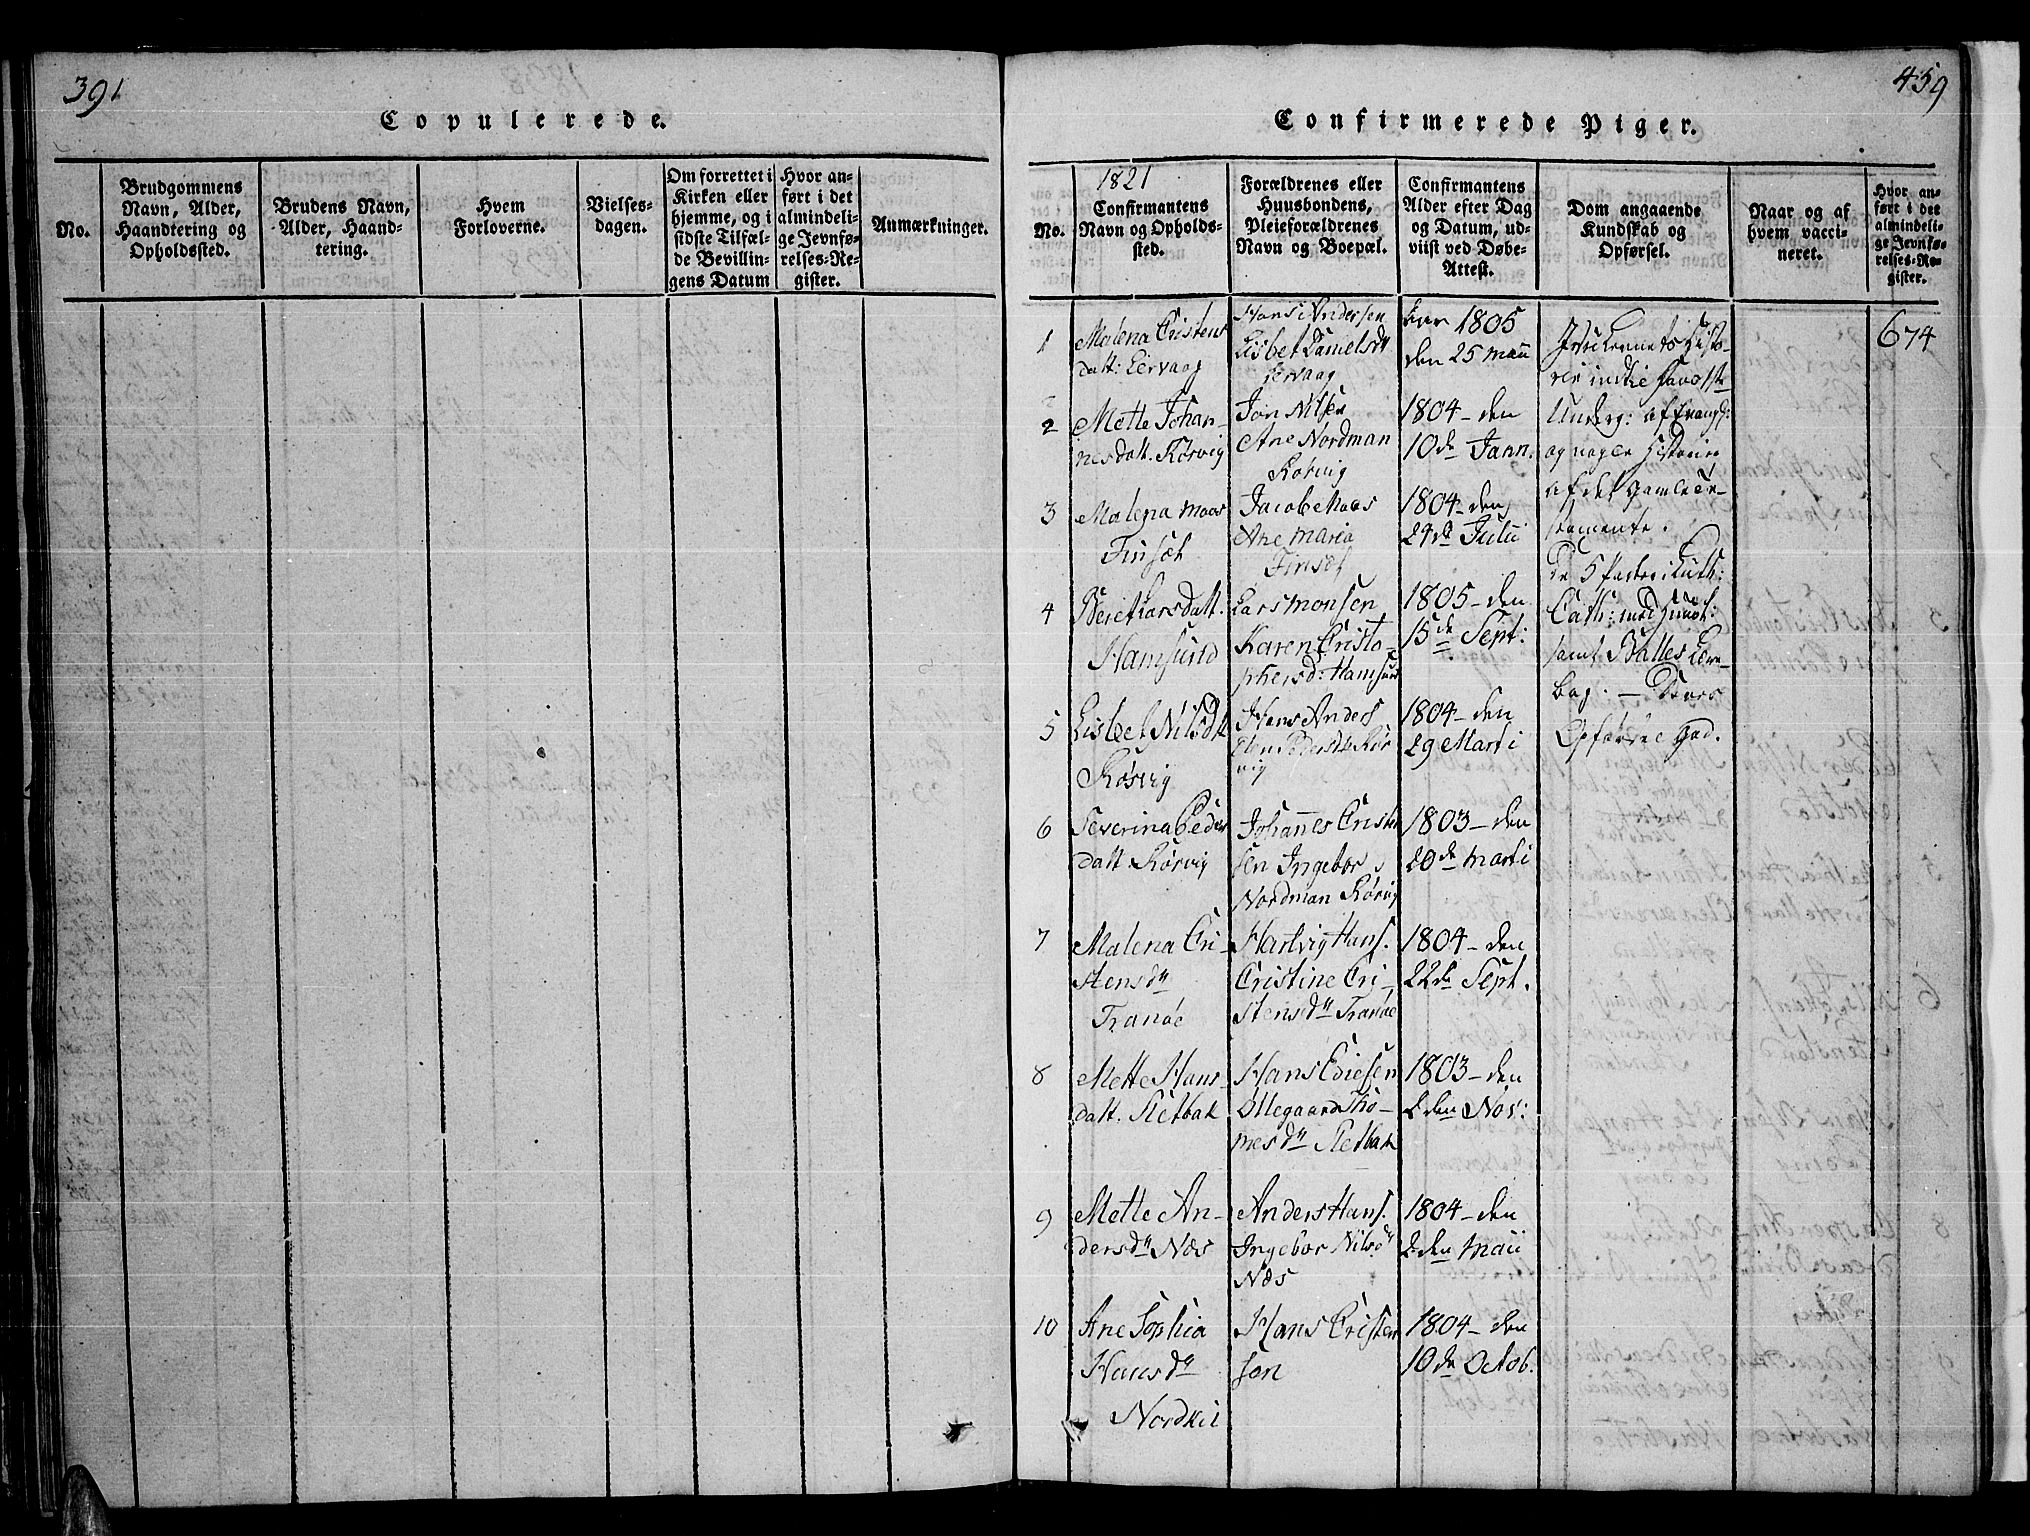 391
Copulerede.
No.
Brudgommens
Navn, Alder,
Haandtering og
Opholdssted.
Brudens Navn,
Alder, Haand-
tering.
Hvem
Forloverne.
Vielses-
dagen.
Om forrettet i
Kirken eller
hjemme, og i
sidste Tilfæl-
de Bevillin-
gens Datum
Hvor an-
ført i det
almindeli-
ge Jevnfø-
relses-Re-
gister.
Anmærkninger.
459
Confirmerede Piger.
No.
1821
Confirmantens
Navn og Opholds-
sted.
Forældrenes eller
Huusbondens,
Pleieforældrenes
Navn og Boepæl.
Confirmantens
Alder efter Dag
og Datum, ud-
viist ved Døbe-
Attest.
Dom angaaende
Kundskab og
Opførsel.
Naar og af
hvem vacci-
neret.
Hvor an-
ført i det
almindeli-
ge Jevnfø-
relses-Re-
gister.
1
Malena Cristens
datt: Eervaag
Hans Andersen
Lisbet Danielsdtt
1805
den 25 Maii
674
2
Mette Johan-
nesdatt. Korsvig
Jon Nilsen
Ane Nordman
Korsvig
1804 - den
10de Jann.
3
Malena Maas
Finset
Jacob Maas
Ane Maria
Finset
1804 - den
24de Julii
4
Beiet Larsdatt.
Hamsund
Lars Monsen
Karen Cristo-
phersd: Hamsund
1805 - den
15de Sept:
5
Lisbet Nilsdtt
Korsvig
Hans Anders
Elen Pedersdtt Kors
vig
1804 - den
29 Marti
6
Severina Peders
datt Korsvig
Johannes Cristen
sen Ingebor
Nordman Korsvig
1803 - den
20de Marti
7
Malena Cri-
stensdtt
Tranøe
Hartvig Hans.
Cristine Cri-
stensdtt Tranøe
1804 - den
22de Sept.
8
Mette Hans
datt. Sletbak
Hans Ediesen
Ollegaard Tho-
mesdtt Sletbak
1803 - den
2den Nov:
9
Mette An-
dersdtt Næs
Anders Hans.
Ingebor Nilsdtt
Næs
1804 - den
2den Maii
10
Ane Sophia
Hansdtt
Nordkil
Hans Cristen
sen
1804 - den
10de Octob.
Underg: af Evangel:
og nogle Historier
af det gamle Te-
stamente.
Cath: med
samt Balles Lære-
bog. - Deres
Opførsel god.